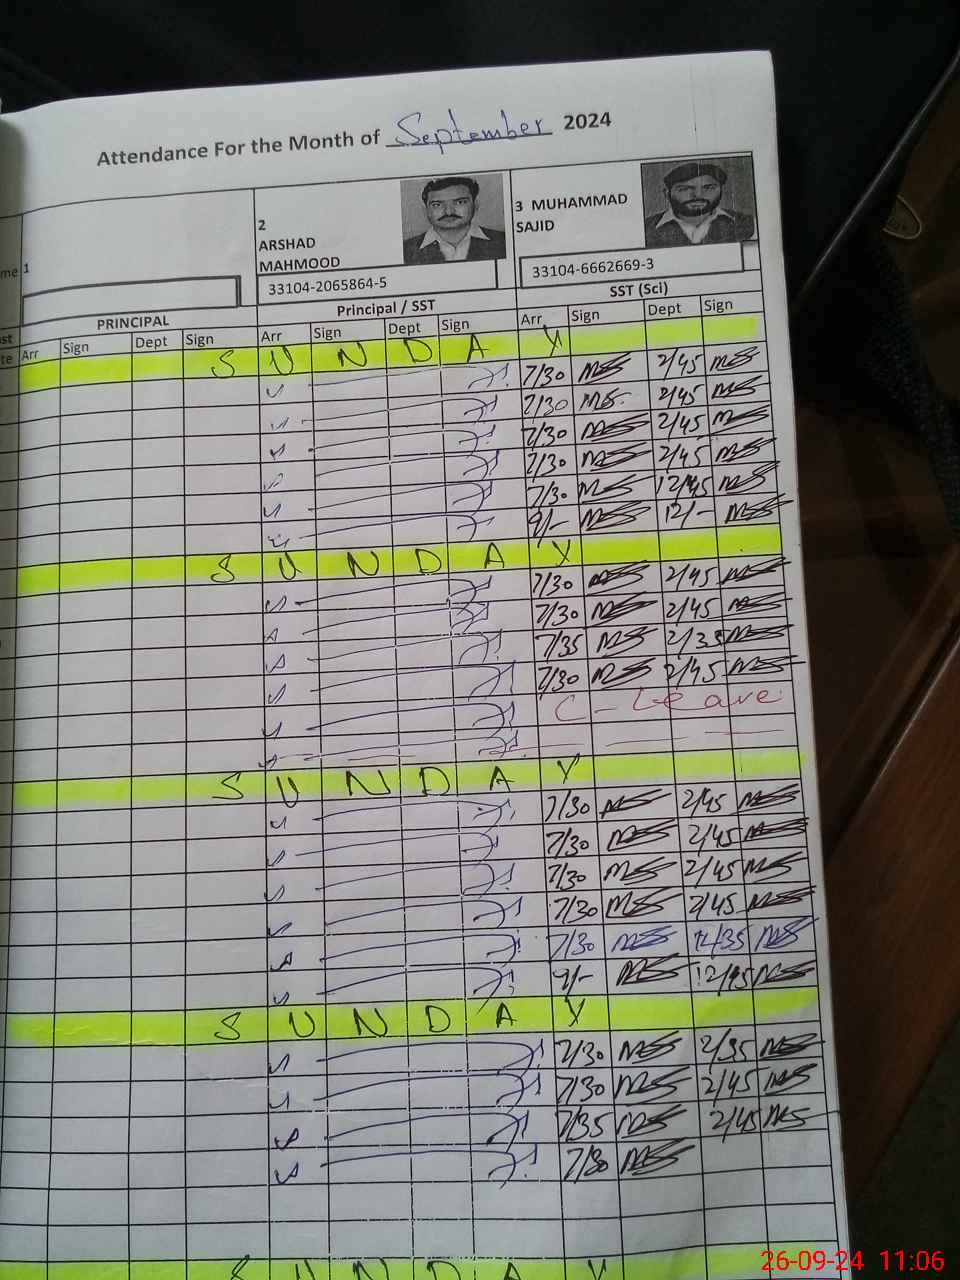 Attendance For the Month of September 2024
me 1
2
ARSHAD
MAHMOOD
33104-2065864-5
3 MUHAMMAD
SAJID
33104-6662669-3
PRINCIPAL
Principal / SST
SST (Sci)
te Arr Sign Dept Sign Arr Sign Dept Sign Arr Sign Dept Sign
S U N D A Y
7/30 2/45
7/30 2/45
7/30 2/45
7/30 2/45
7/30 12/45
9/- 12/-
S U N D A Y
7/30 2/45
7/30 2/45
7/35 2/35
7/30 2/45
C - Leave
S U N D A Y
7/30 2/45
7/30 2/45
7/30 2/45
7/30 2/45
7/30 12/35
9/- 12/45
S U N D A Y
7/30 2/35
7/30 2/45
7/35 2/45
7/30
S U N D A Y
26-09-24 11:06